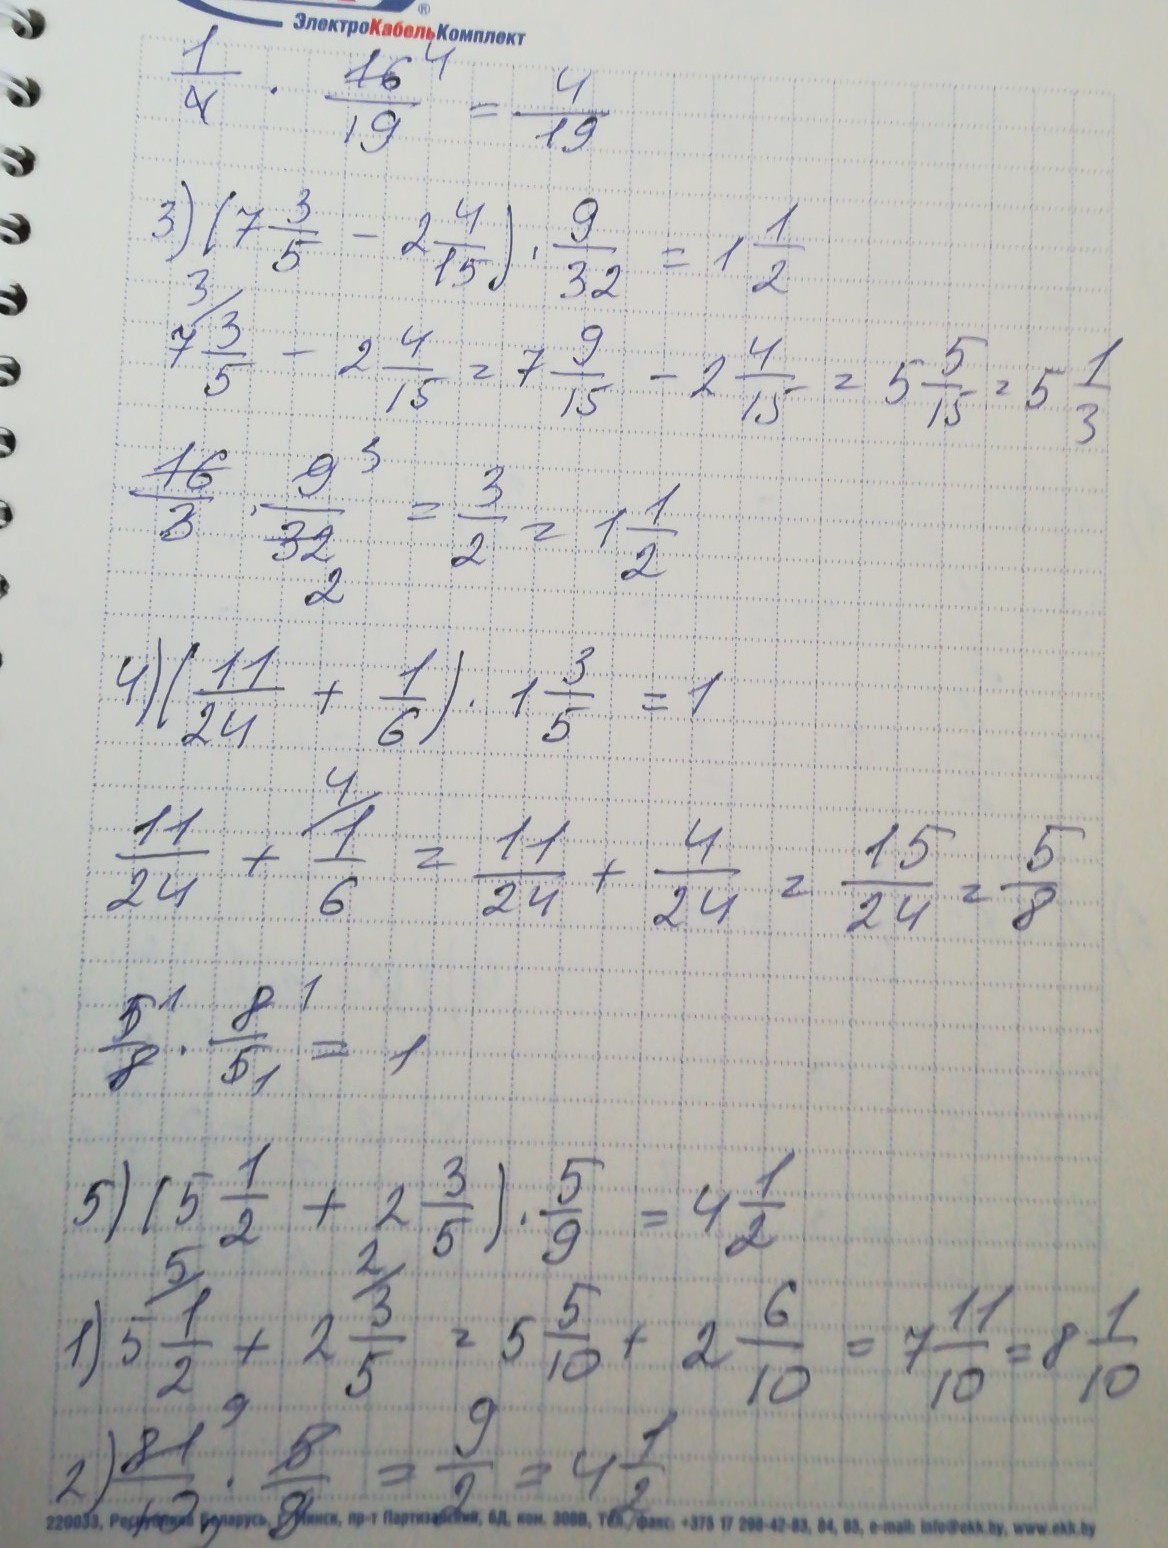 ЭлектроКабельКомплект ®
1/4 · 16/19 4 = 4/19
3) (7 3/5 - 2 4/15) · 9/32 = 1 1/2
3
7 3/5 - 2 4/15 = 7 9/15 - 2 4/15 = 5 5/15 = 5 1/3
16/3 · 9/32 3 = 3/2 = 1 1/2
2
4) (11/24 + 1/6) · 1 3/5 = 1
4
11/24 + 1/6 = 11/24 + 4/24 = 15/24 = 5/8
5/8 1 · 8/5 1 1 = 1
5) (5 1/2 + 2 3/5) · 5/9 = 4 1/2
5 2
1) 5 1/2 + 2 3/5 = 5 5/10 + 2 6/10 = 7 11/10 = 8 1/10
2) 81/10 9 · 5/9 = 9/2 = 4 1/2
220033, Республика Беларусь, г. Минск, пр-т Партизанский, 6Д, ком. 308В, Тел./факс: +375 17 298-42-83, 84, 85, e-mail: info@ekk.by, www.ekk.by